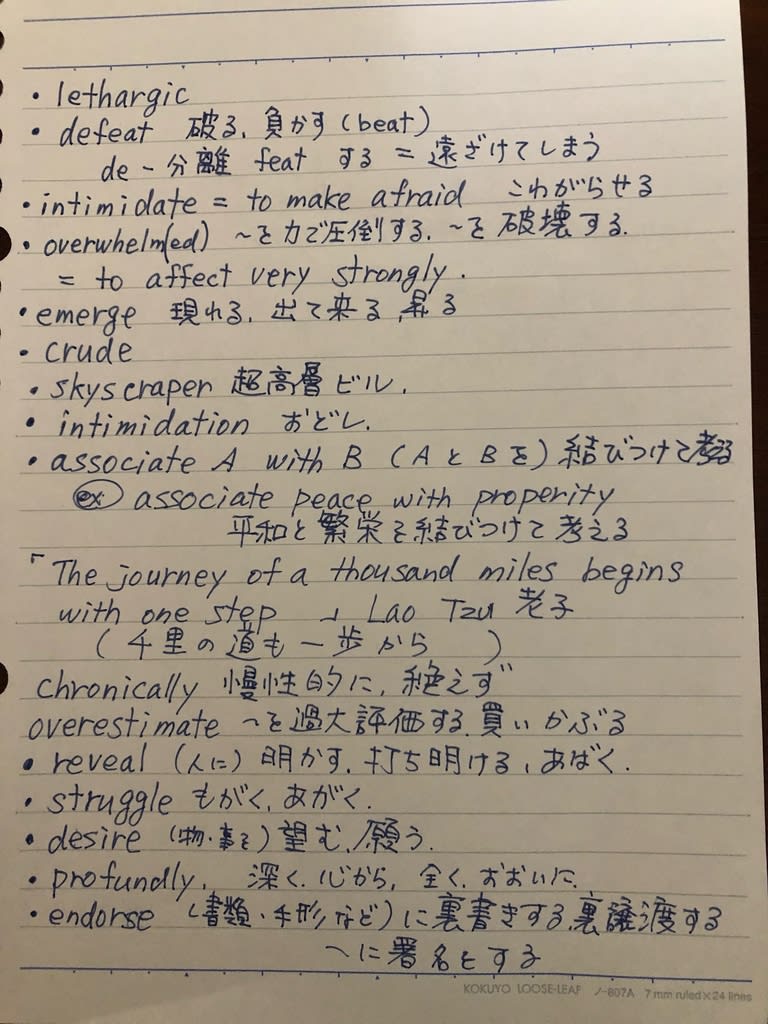 • lethargic
• defeat 破る、負かす (beat)
de - 分離 feat する = 遠ざけてしまう
• intimidate = to make afraid こわがらせる
• overwhelm(ed) ～を力で圧倒する、～を破壊する.
= to affect very strongly.
• emerge 現れる、出て来る、昇る
• crude
• skyscraper 超高層ビル.
• intimidation おどし.
• associate A with B (AとBを) 結びつけて考える
ex. associate peace with properity
平和と繁栄を結びつけて考える
「The journey of a thousand miles begins
with one step 」 Lao Tzu 老子
(千里の道も一歩から )
chronically 慢性的に、絶えず
overestimate ～を過大評価する、買いかぶる
• reveal (人に) 明かす、打ち明ける、あばく.
• struggle もがく、あがく.
• desire (物・事を) 望む、願う.
• profundly. 深く、心から、全く、おおいに.
• endorse (書類・手形など) に裏書きする、裏譲渡する
～に署名をする
KOKUYO LOOSE-LEAF ノ-807A 7 mm ruled × 24 lines